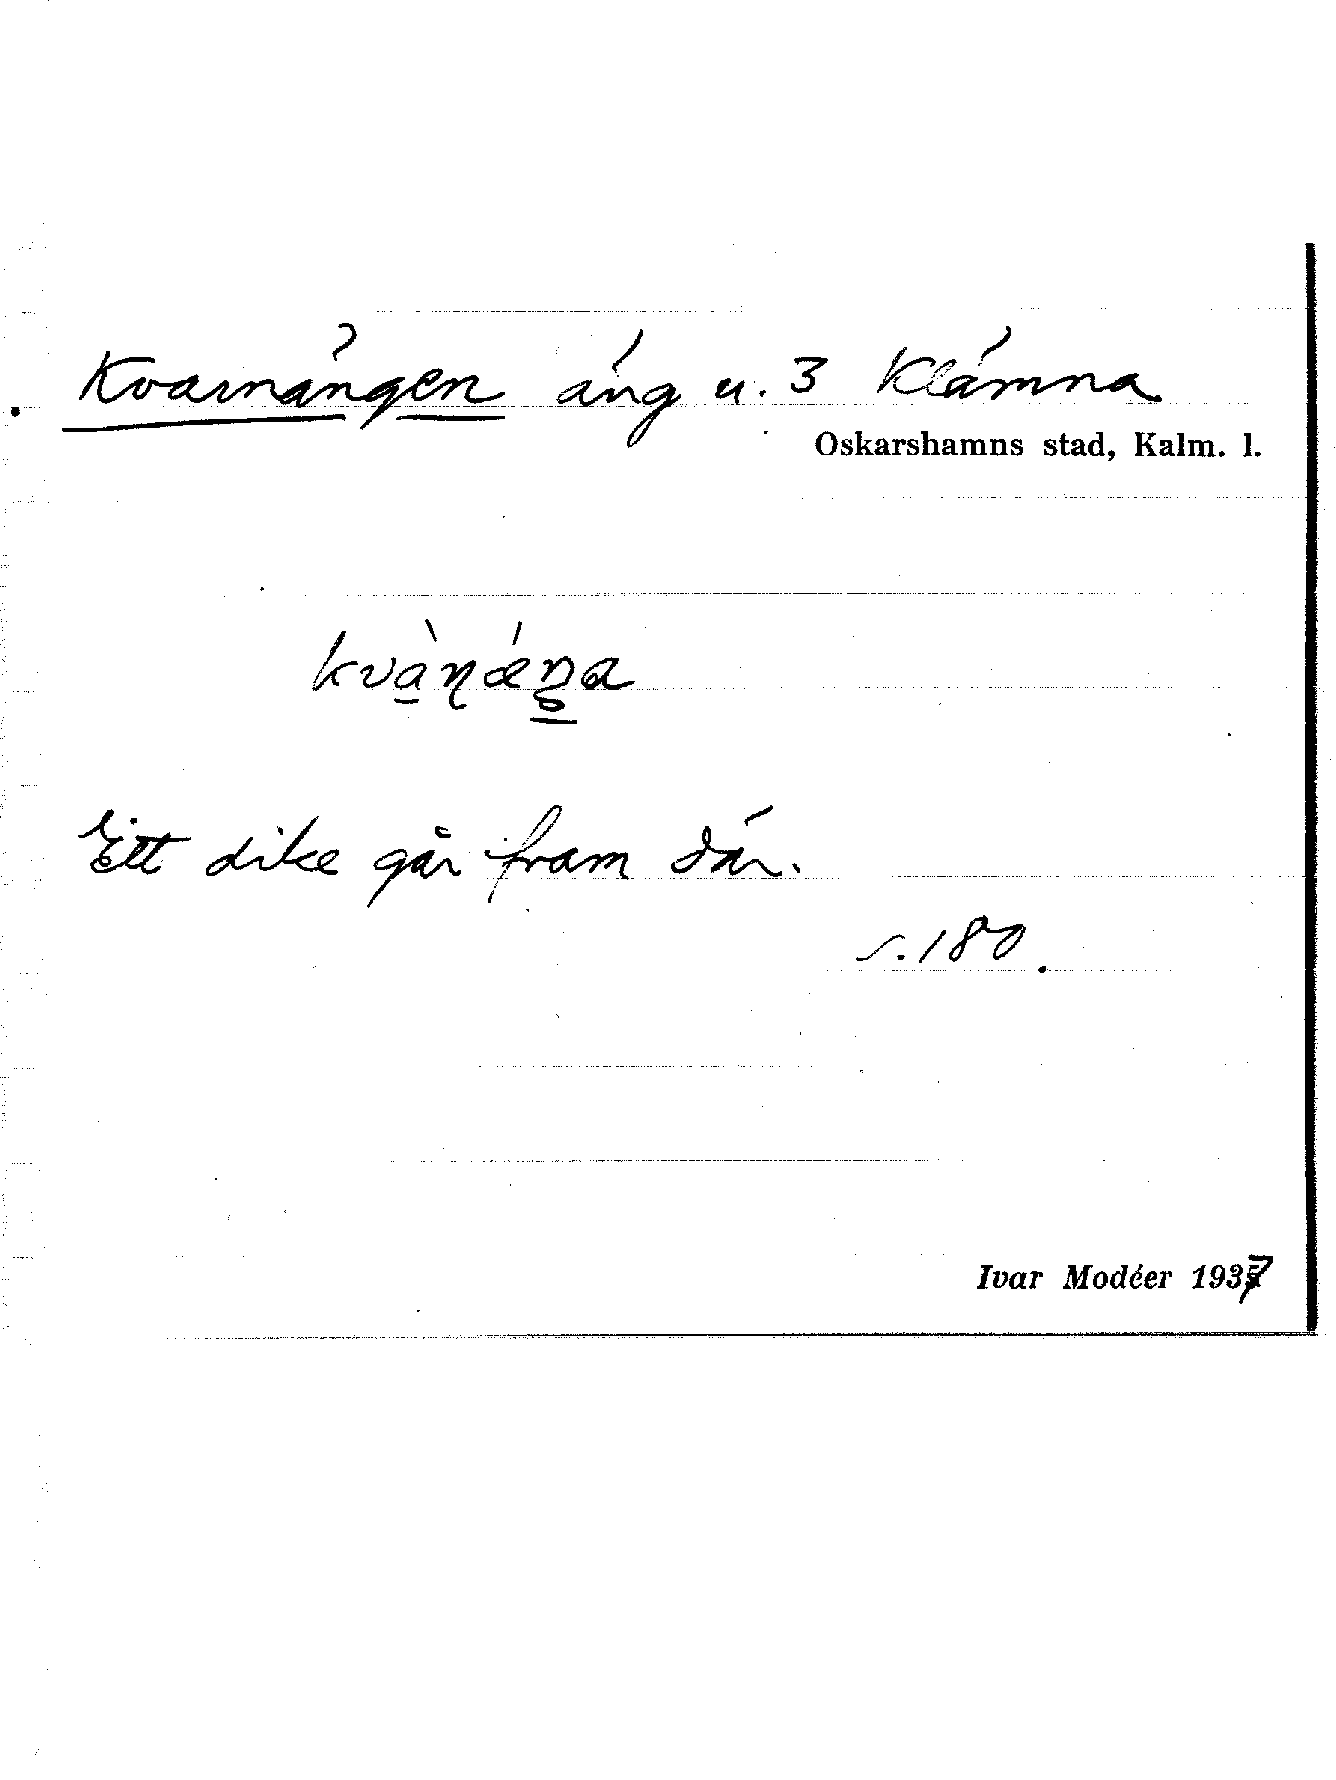 Kvarnängen äng u. 3 Klämna
Oskarshamns stad, Kalm. l.
kvàɳǽŋa
Ett dike går fram där.
s. 180.
Ivar Modéer 1937